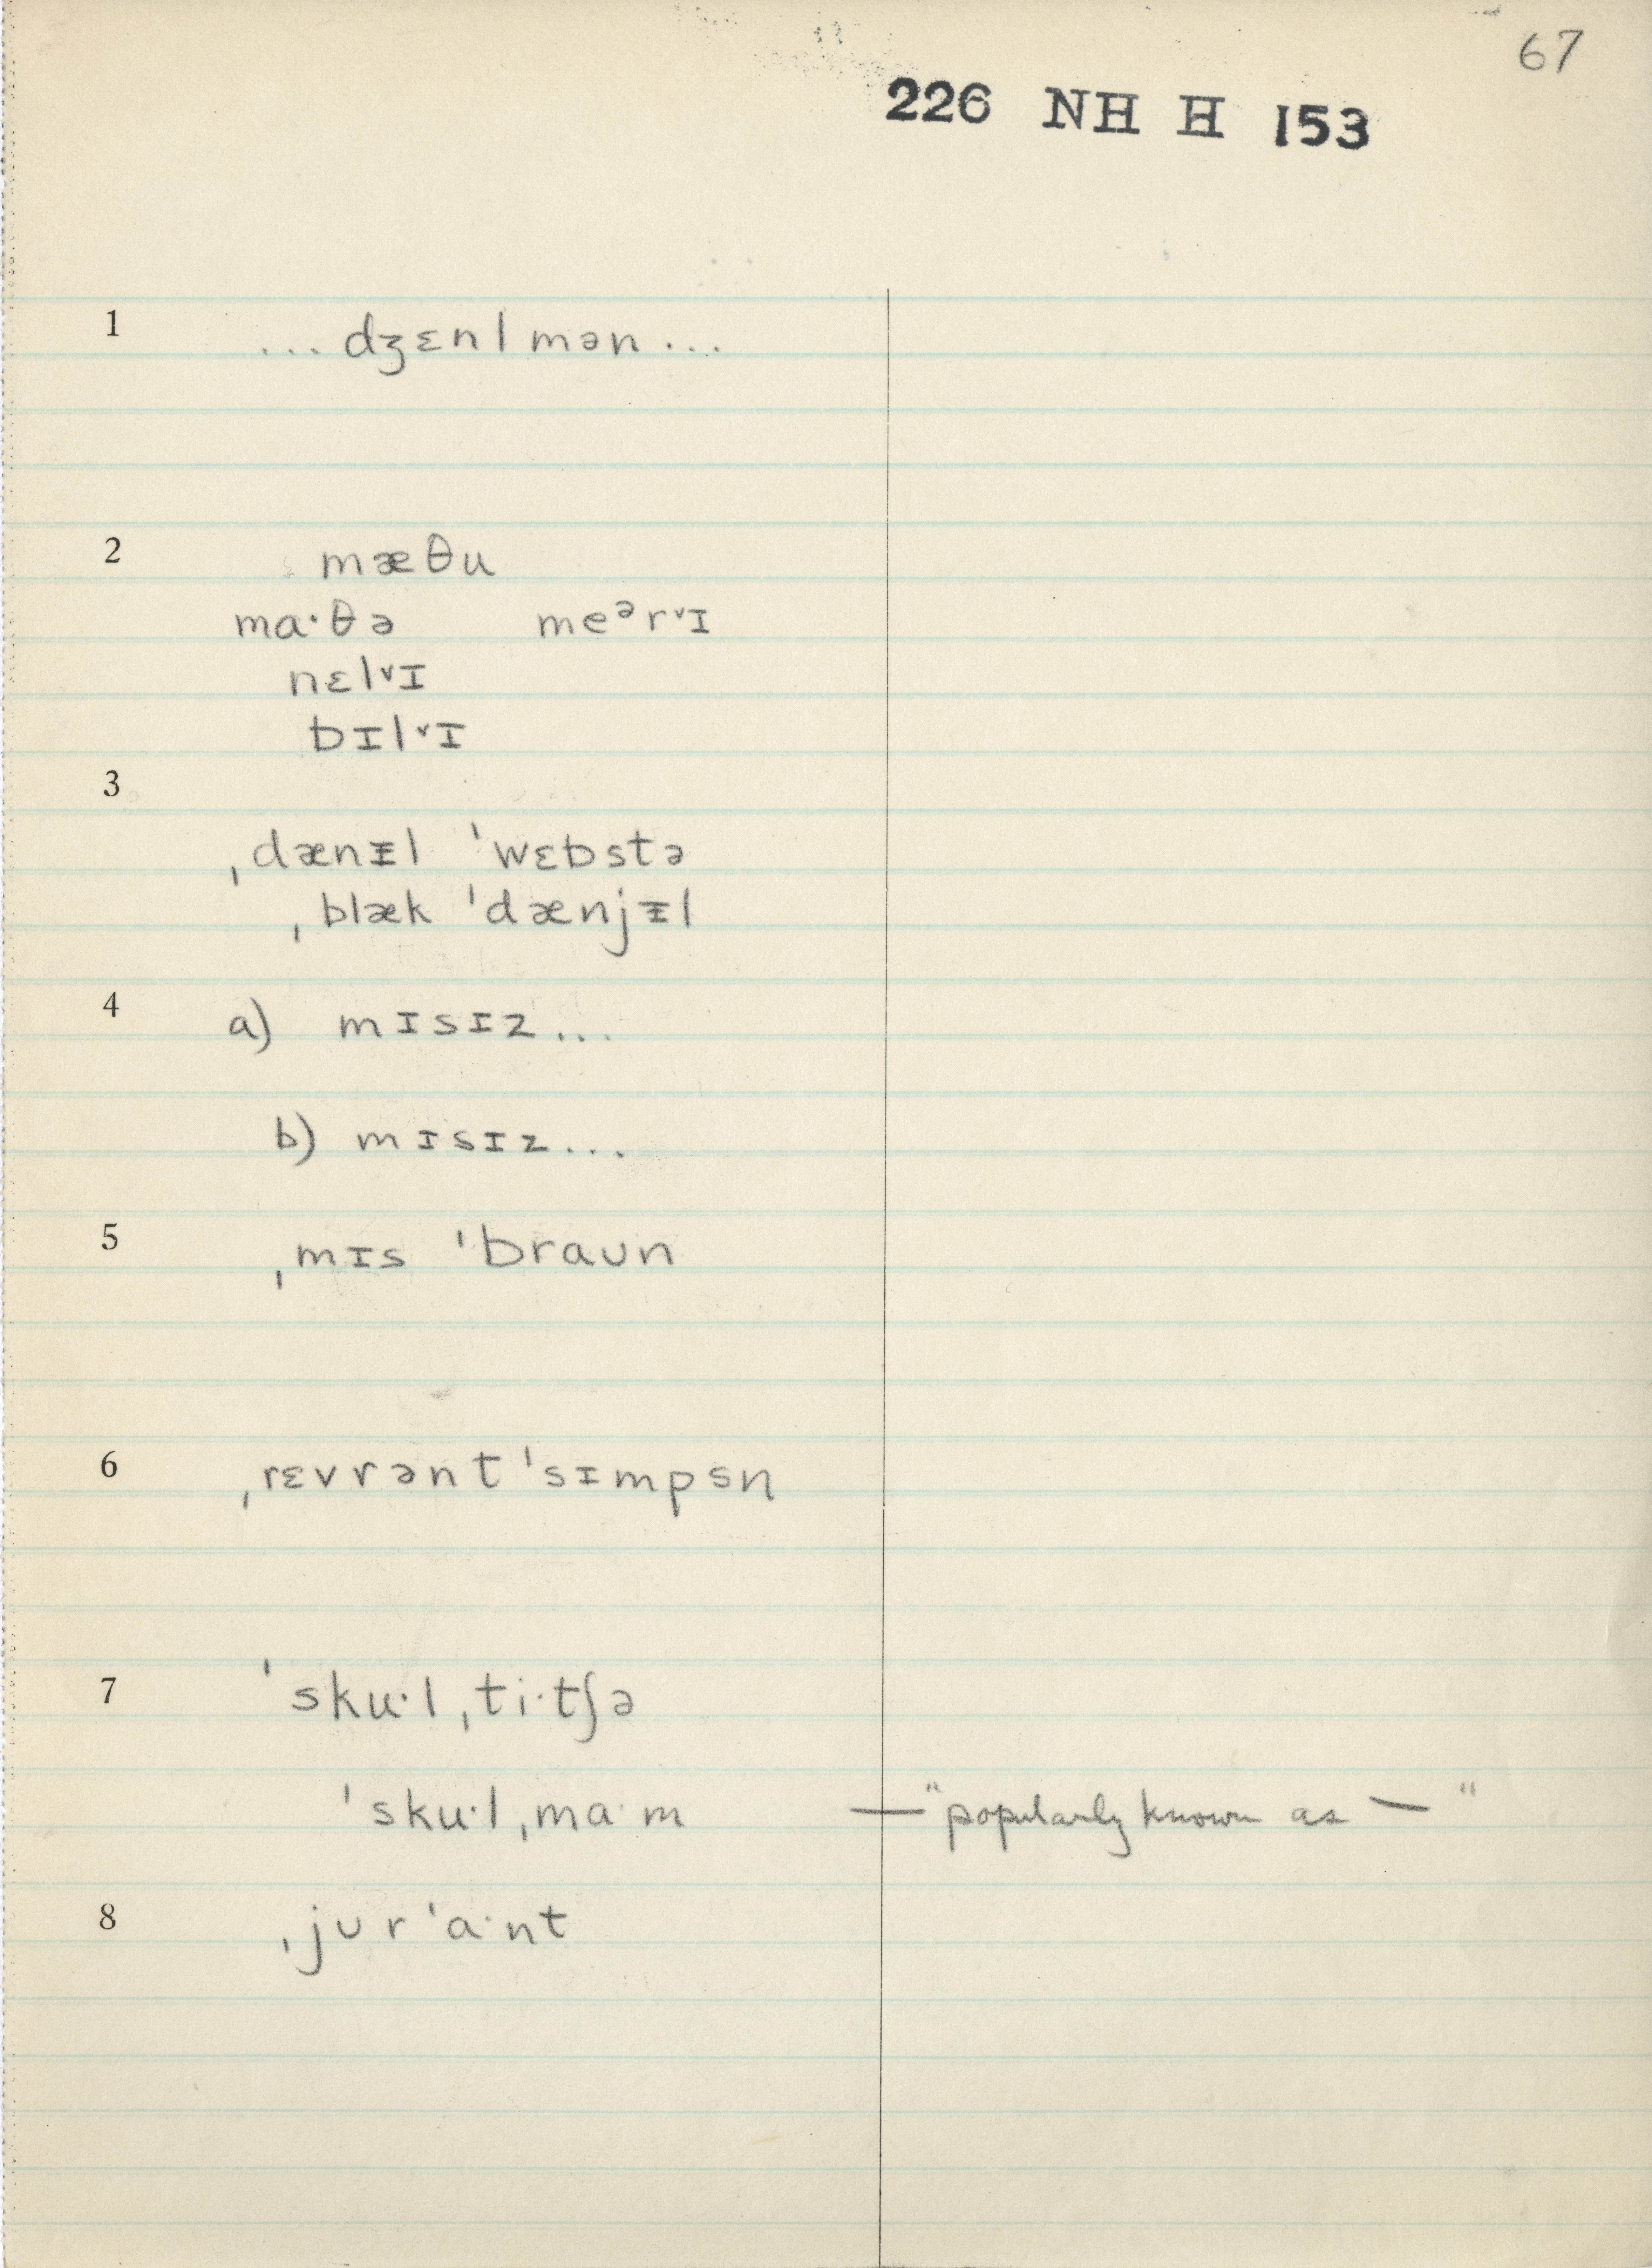 67
226 NH H 153
1 ... dʒɛnlmən ...
2 mæθu
ma·θə meᵊrᵛɪ
nɛlᵛɪ
bɪlᵛɪ
3
ˌdænᵻl ˈwɛbstə
ˌblæk ˈdænjᵻl
4 a) mɪsɪz ...
b) mɪsɪz ...
5 ˌmɪs ˈbraʊn
6 ˌrɛvrənt ˈsɪmpsn
7 ˈsku·lˌti·tʃə
ˈsku·lˌma·m — "popularly known as — "
8 ˌjʊrˈa·nt